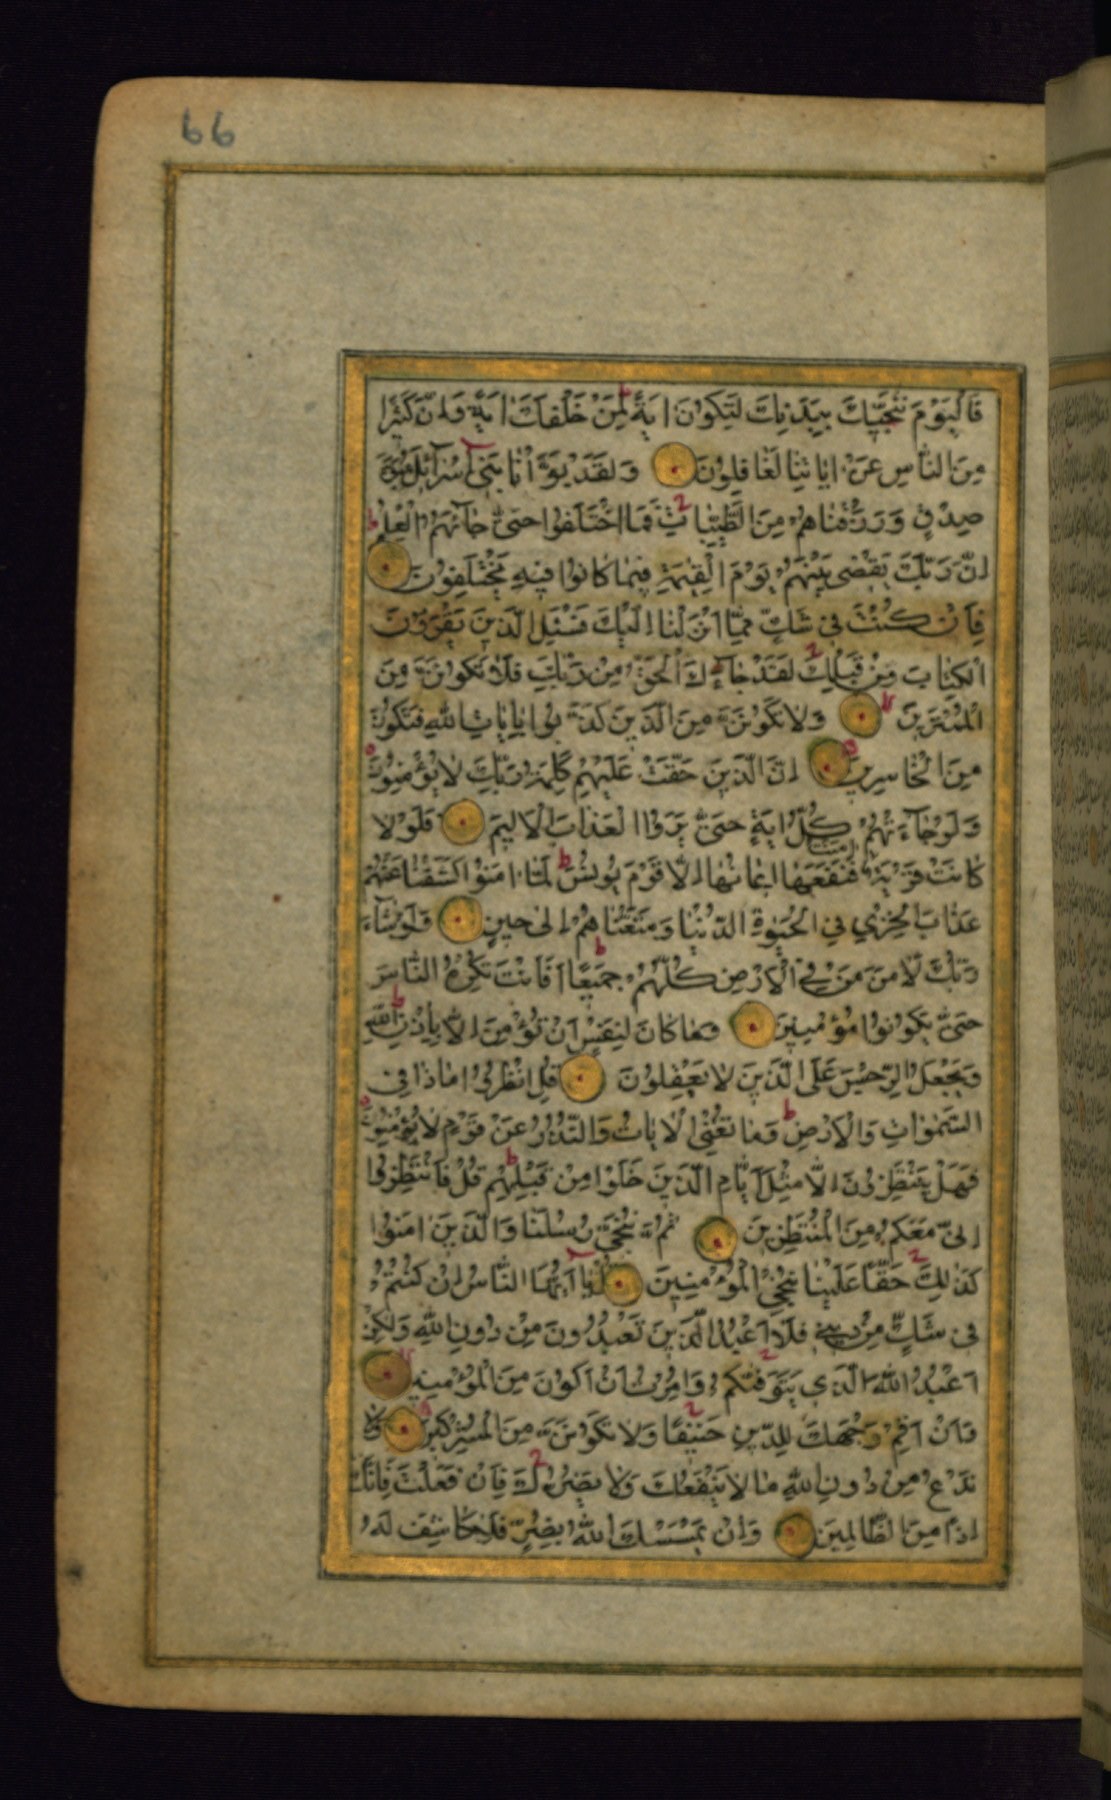 66
فَالْيَوْمَ نُنَجِّيكَ بِبَدَنِكَ لِتَكُونَ لِمَنْ خَلْفَكَ اٰيَةً وَاِنَّ كَثِيرًا
مِنَ النَّاسِ عَنْ اٰيَاتِنَا لَغَافِلُونَ وَلَقَدْ بَوَّأْنَا بَنِي اِسْرَآئِلَ مُبَوَّءَ
صِدْقٍ وَرَزَقْنَاهُمْ مِنَ الطَّيِّبَاتِ فَمَا اخْتَلَفُوا حَتّٰى جَآءَهُمُ الْعِلْمُ
اِنَّ رَبَّكَ يَقْضِى بَيْنَهُمْ يَوْمَ الْقِيٰمَةِ فِيمَا كَانُوا فِيهِ يَخْتَلِفُونَ
فَاِنْ كُنْتَ فِى شَكٍّ مِمَّا اَنْزَلْنَا اِلَيْكَ فَسْئَلِ الَّذِينَ يَقْرَؤُنَ
الْكِتَابَ مِنْ قَبْلِكَ لَقَدْ جَآءَكَ الْحَقُّ مِنْ رَبِّكَ فَلَا تَكُونَنَّ مِنَ
الْمُمْتَرِينَ وَلَا تَكُونَنَّ مِنَ الَّذِينَ كَذَّبُوا بِاٰيَاتِ اللهِ فَتَكُونَ
مِنَ الْخَاسِرِينَ اِنَّ الَّذِينَ حَقَّتْ عَلَيْهِمْ كَلِمَةُ رَبِّكَ لَا يُؤْمِنُونَ
وَلَوْ جَآءَتْهُمْ كُلُّ اٰيَةٍ حَتّٰى يَرَوُا الْعَذَابَ الْاَلِيمَ فَلَوْلَا
كَانَتْ قَرْيَةٌ اٰمَنَتْ فَنَفَعَهَا اِيمَانُهَا اِلَّا قَوْمَ يُونُسَ لَمَّا اٰمَنُوا كَشَفْنَا عَنْهُمْ
عَذَابَ الْخِزْىِ فِى الْحَيٰوةِ الدُّنْيَا وَمَتَّعْنَاهُمْ اِلٰى حِينٍ وَلَوْ شَآءَ
رَبُّكَ لَاٰمَنَ مَنْ فِى الْاَرْضِ كُلُّهُمْ جَمِيعًا اَفَاَنْتَ تُكْرِهُ النَّاسَ
حَتّٰى يَكُونُوا مُؤْمِنِينَ وَمَا كَانَ لِنَفْسٍ اَنْ تُؤْمِنَ اِلَّا بِاِذْنِ اللهِ
وَيَجْعَلُ الرِّجْسَ عَلَى الَّذِينَ لَا يَعْقِلُونَ قُلِ انْظُرُوا مَاذَا فِى
السَّمٰوَاتِ وَالْاَرْضِ وَمَا تُغْنِى الْاٰيَاتُ وَالنُّذُرُ عَنْ قَوْمٍ لَا يُؤْمِنُونَ
فَهَلْ يَنْتَظِرُونَ اِلَّا مِثْلَ اَيَّامِ الَّذِينَ خَلَوْا مِنْ قَبْلِهِمْ قُلْ فَانْتَظِرُوا
اِنِّى مَعَكُمْ مِنَ الْمُنْتَظِرِينَ ثُمَّ نُنَجِّى رُسُلَنَا وَالَّذِينَ اٰمَنُوا
كَذٰلِكَ حَقًّا عَلَيْنَا نُنْجِ الْمُؤْمِنِينَ قُلْ يَا اَيُّهَا النَّاسُ اِنْ كُنْتُمْ
فِى شَكٍّ مِنْ دِينِى فَلَا اَعْبُدُ الَّذِينَ تَعْبُدُونَ مِنْ دُونِ اللهِ وَلٰكِنْ
اَعْبُدُ اللهَ الَّذِى يَتَوَفّٰيكُمْ وَاُمِرْتُ اَنْ اَكُونَ مِنَ الْمُؤْمِنِينَ
وَاَنْ اَقِمْ وَجْهَكَ لِلدِّينِ حَنِيفًا وَلَا تَكُونَنَّ مِنَ الْمُشْرِكِينَ وَلَا
تَدْعُ مِنْ دُونِ اللهِ مَا لَا يَنْفَعُكَ وَلَا يَضُرُّكَ فَاِنْ فَعَلْتَ فَاِنَّكَ
اِذًا مِنَ الظَّالِمِينَ وَاِنْ يَمْسَسْكَ اللهُ بِضُرٍّ فَلَا كَاشِفَ لَهُ